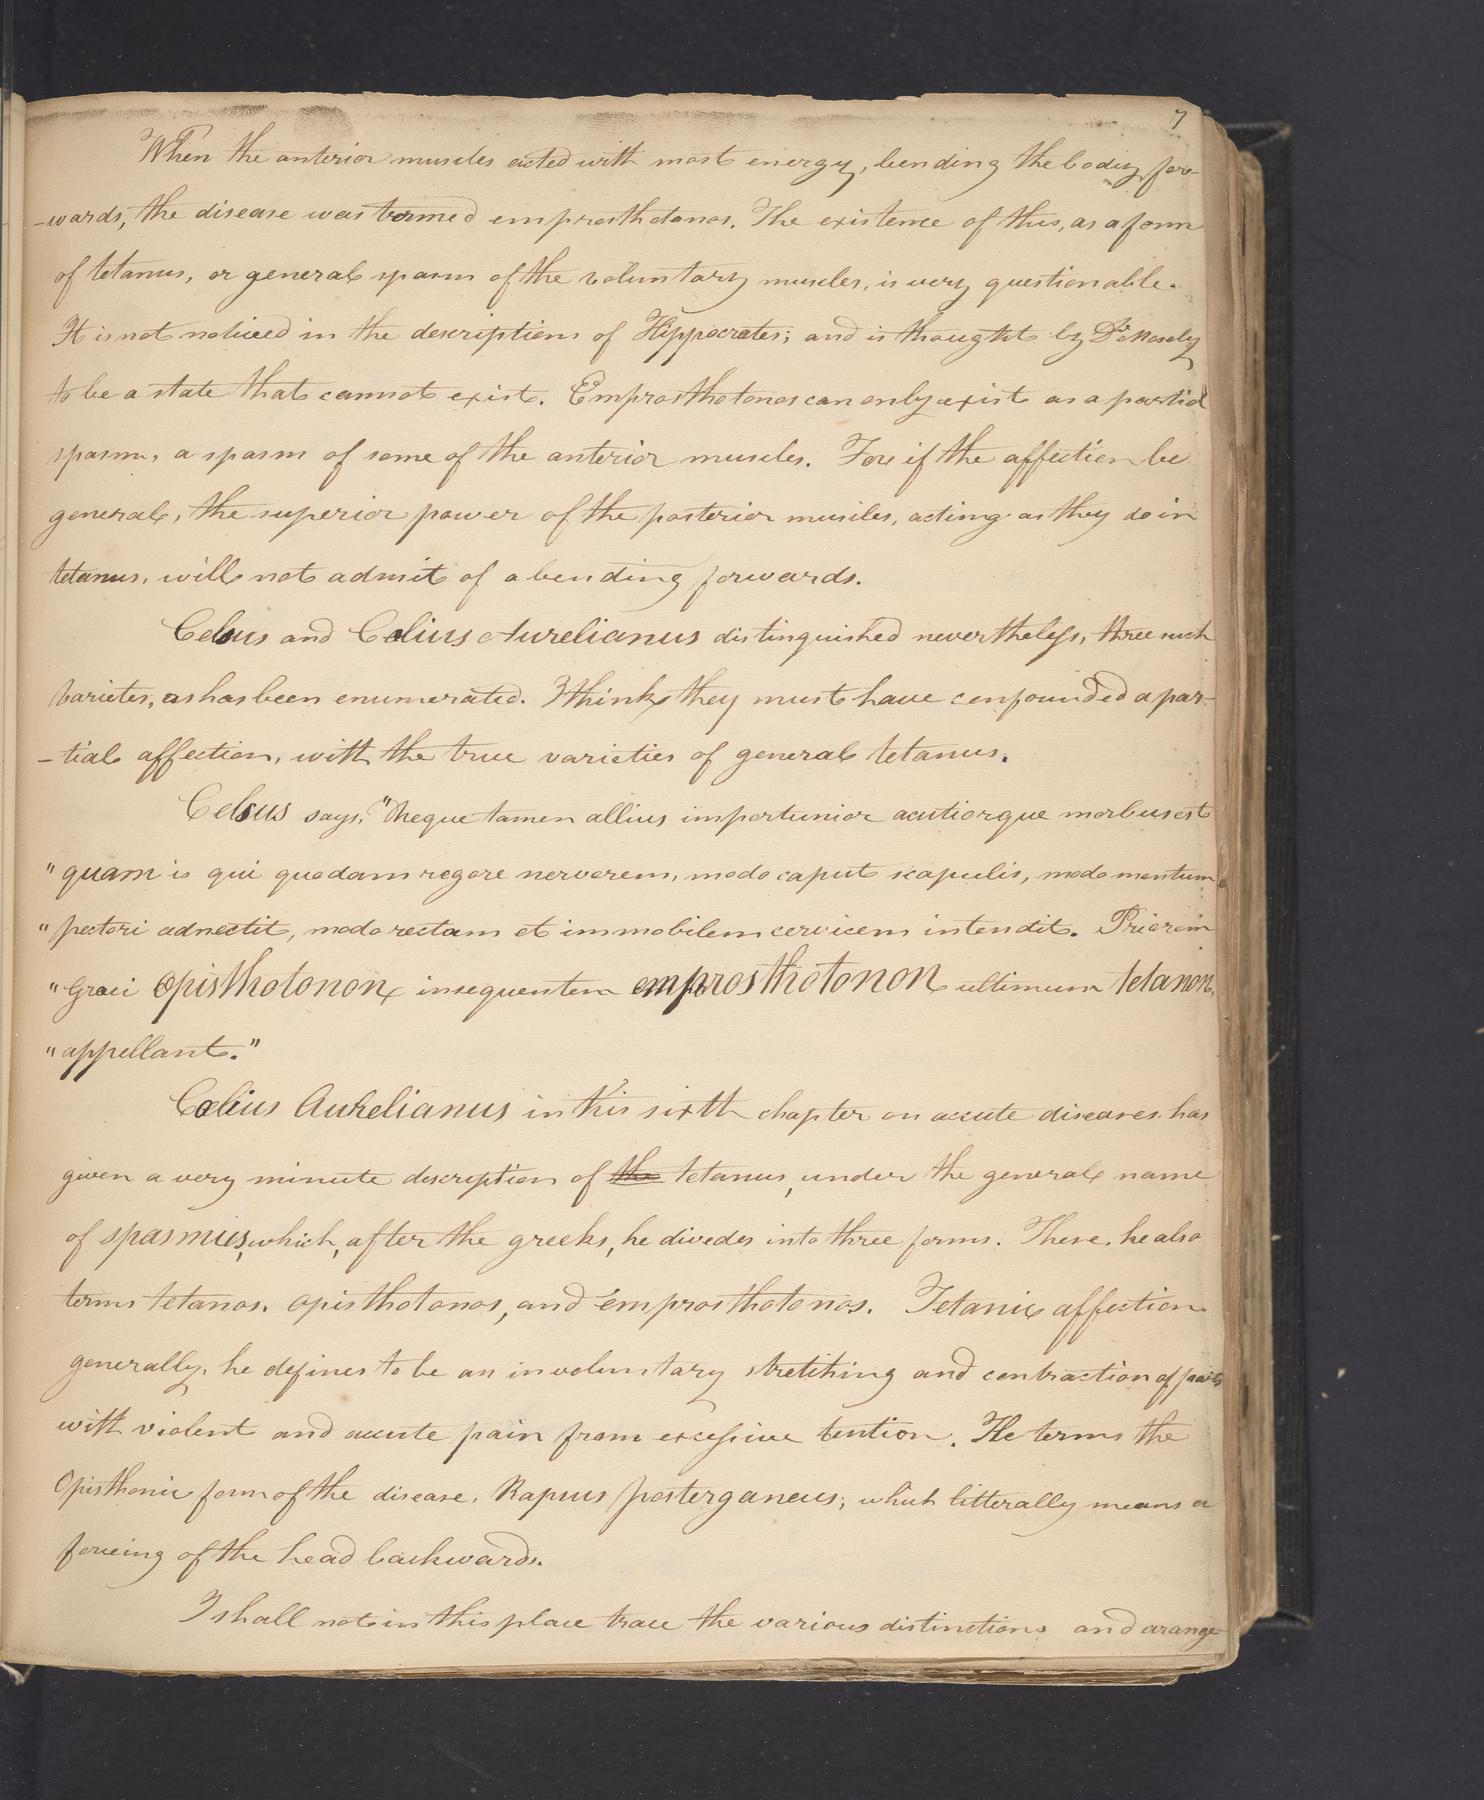 7
When the anterior muscles acted with most energy, bending the body for-
-wards, the disease was termed emprosthotonos. The existence of this, as a form
of tetanus, or general spasm of the voluntary muscles, is very questionable.
It is not noticed in the descriptions of Hippocrates; and is thought by Dr. Mosely
to be a state that cannot exist. Emprosthotonos can only exist as a partial
spasm, a spasm of some of the anterior muscles. For if the affection be
general, the superior power of the posterior muscles, acting as they do in
tetanus, will not admit of a bending forwards.
Celsus and Celius Aurelianus distinguished nevertheless, three such
varietes, as has been enumerated. I think they must have confounded a par-
-tial affection, with the true varieties of general tetanus.
Celsus says, "Neque tamen allius importunior acutiorque morbus est
"quam is qui quodam regore nervorem, modo caput scapulis, modo mentum
"pectori adnectit, modo rectam et immobilem cervicem intendit. Priorem
"Graci Opisthotonon insequentem emprosthotonon ultimum tetanon,
"appellant."
Celius Aurelianus in this sixth chapter on accute diseases has
given a very minute description of the tetanus, under the general name
of spasmus, which, after the greeks, he divedes into three forms. These, he also
terms tetanos, opisthotonos, and emprosthotonos. Tetanic affection
generally, he defines to be an involuntary stretching and contraction of parts
with violent and accute pain from excessive tention. He terms the
Opisthonic form of the disease, Rapus posterganeus; which litterally means a
forcing of the head backwards.
I shall not in this place trace the various distinctions and arange-